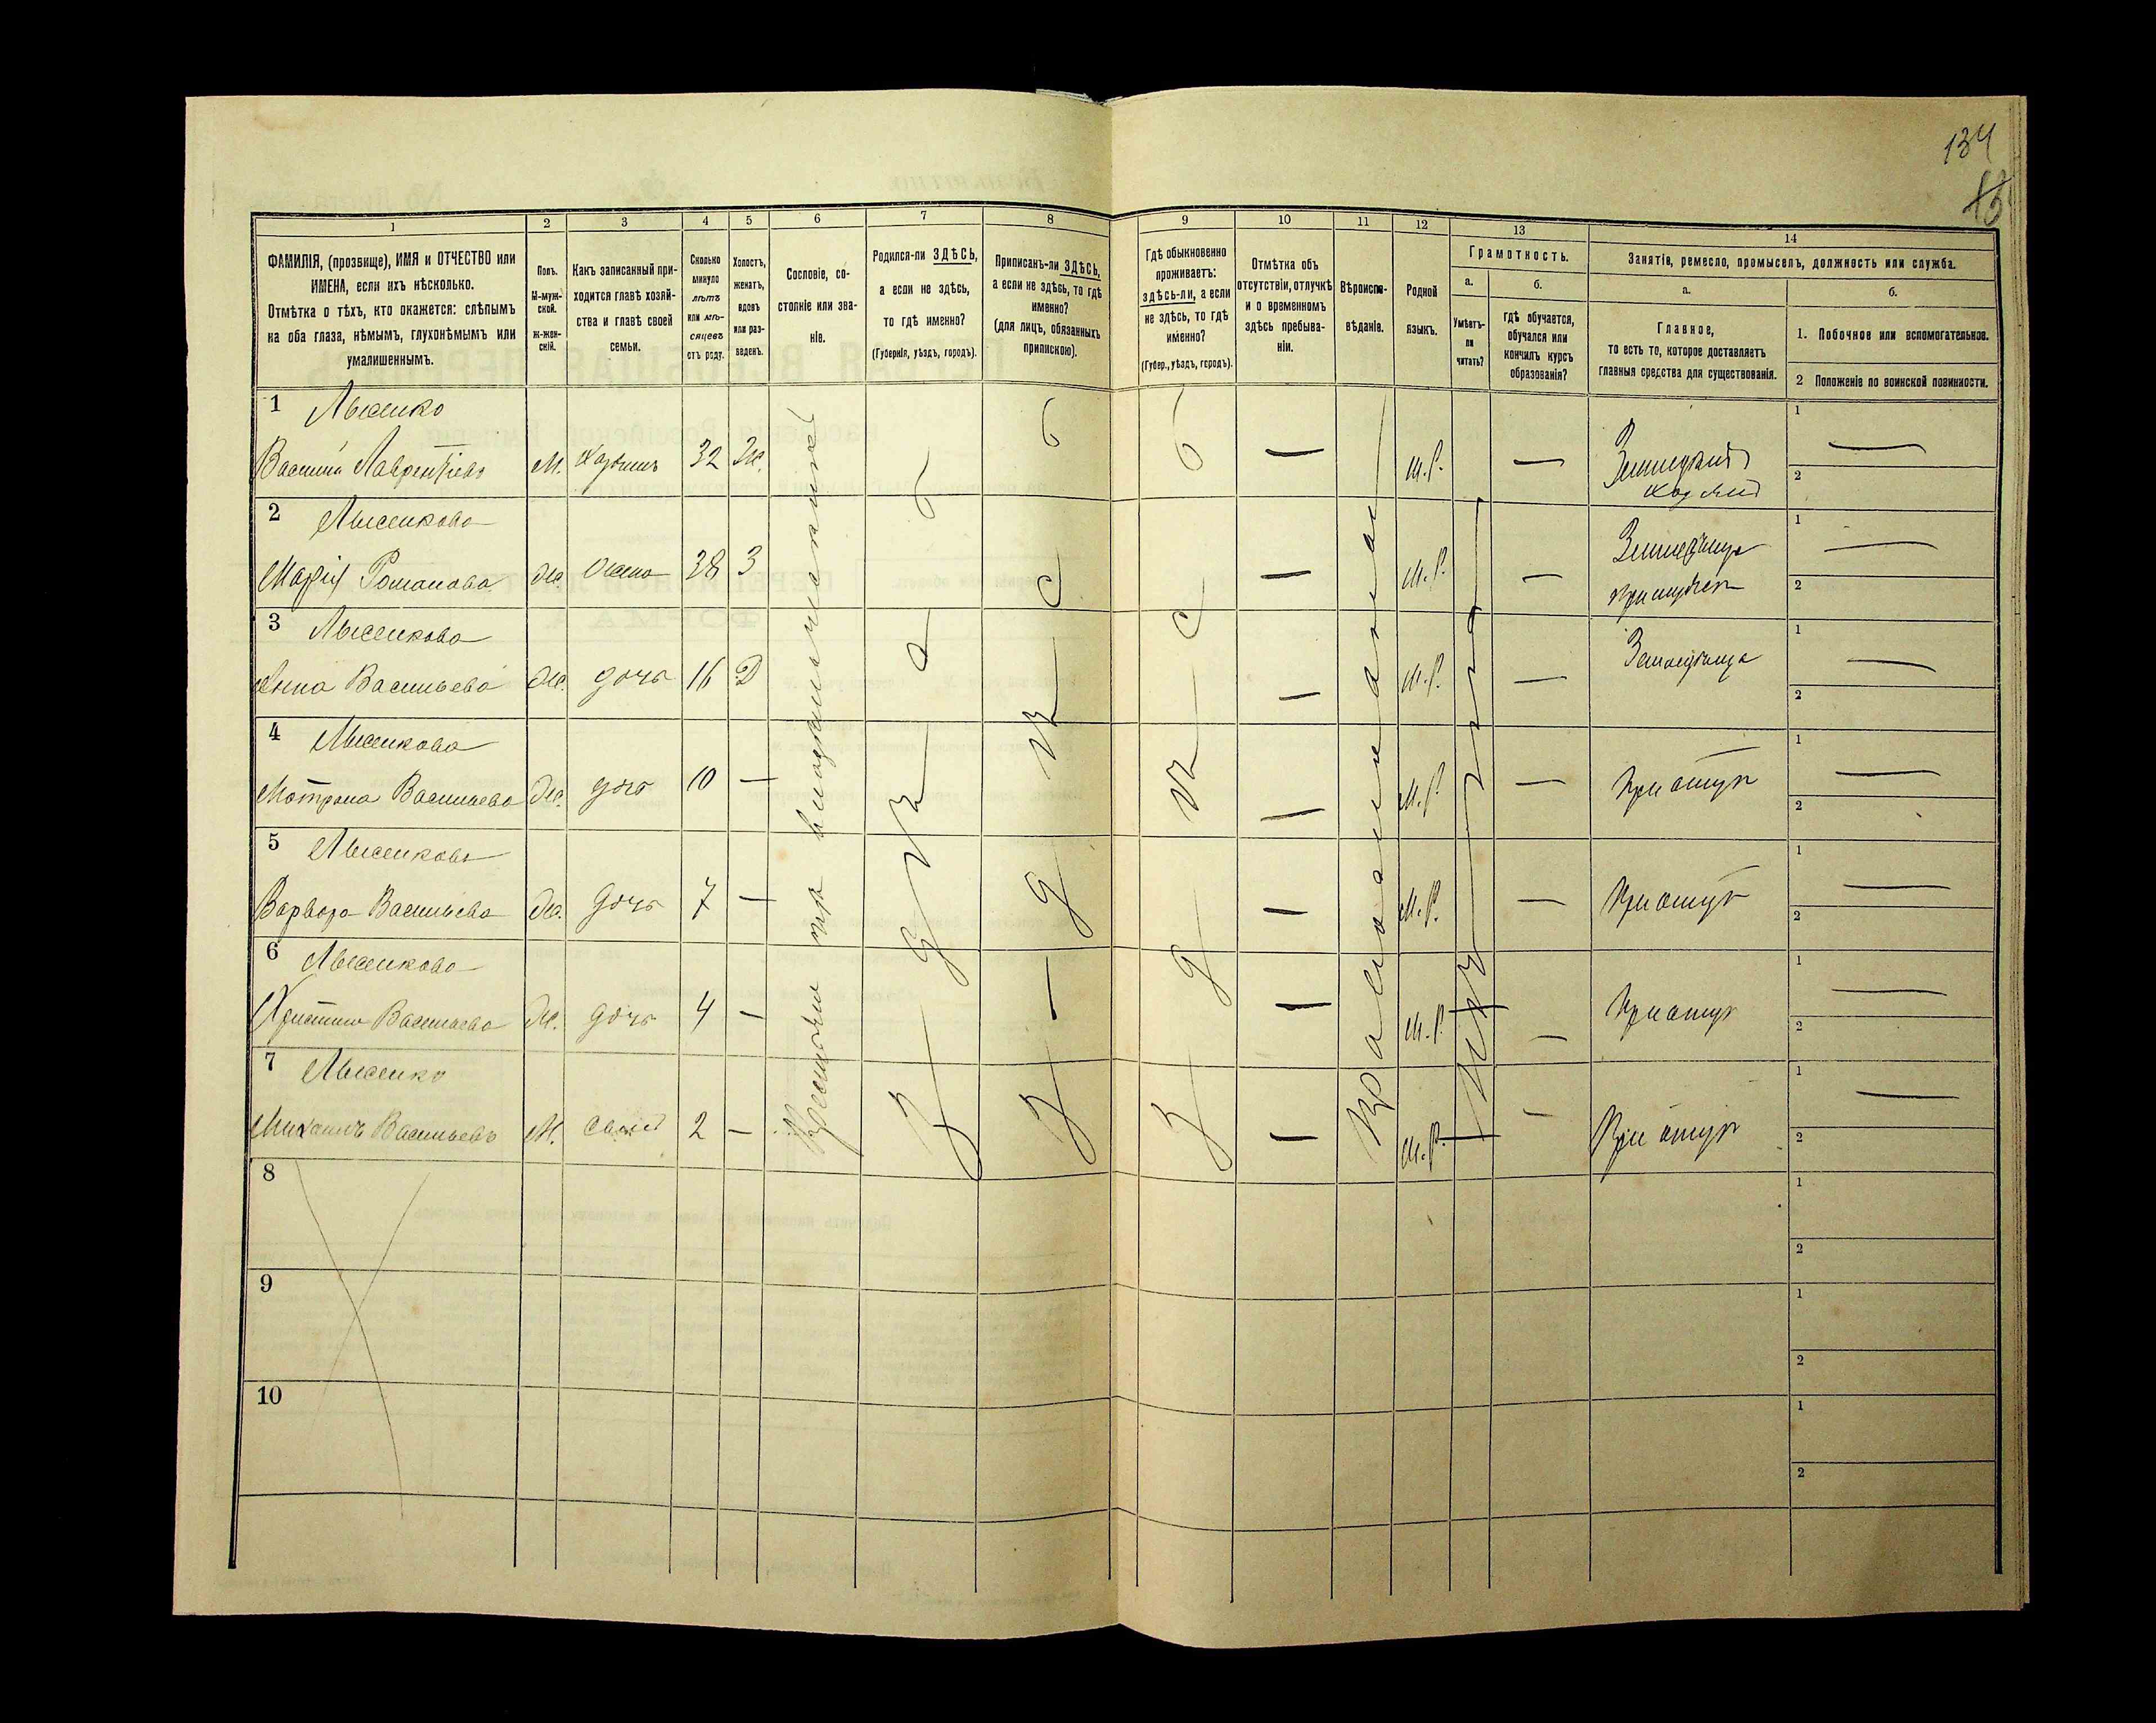 134
1
2
3
4
5
6
7
8
9
10
11
12
13
14
ФАМИЛІЯ, (прозвище), ИМЯ и ОТЧЕСТВО или
ИМЕНА, если ихъ нѣсколько.
Отмѣтка о тѣхъ, кто окажется: слѣпымъ
на оба глаза, нѣмымъ, глухонѣмымъ или
умалишеннымъ.
Полъ.
М-муж-
ской.
Ж-жен-
скій.
Какъ записанный при-
ходится главѣ хозяй-
ства и главѣ своей
семьи.
Сколько
минуло
лѣтъ
или мѣ-
сяцевъ
отъ роду.
Холостъ,
женатъ,
вдовъ
или раз-
веденъ.
Сословіе, со-
стояніе или зва-
ніе.
Родился-ли ЗДѢСЬ,
а если не здѣсь,
то гдѣ именно?
(Губернія, уѣздъ, городъ).
Приписанъ-ли ЗДѢСЬ,
а если не здѣсь, то гдѣ
именно?
(для лицъ, обязанныхъ
припискою).
Гдѣ обыкновенно
проживаетъ:
здѣсь-ли, а если
не здѣсь, то гдѣ
именно?
(Губер., уѣздъ, городъ).
Отмѣтка объ
отсутствіи, отлучкѣ
и о временномъ
здѣсь пребыва-
ніи.
Вѣроиспо-
вѣданіе.
Родной
языкъ.
Грамотность.
а.
б.
Умѣетъ-
ли
читать?
гдѣ обучается,
обучался или
кончилъ курсъ
образованія?
Занятіе, ремесло, промыселъ, должность или служба.
а.
б.
Главное,
то есть то, которое доставляетъ
главныя средства для существованія.
1. Побочное или вспомогательное.
2 Положеніе по воинской повинности.
1 Лысенко
Василій Лаврентіевъ М. Хозяинъ 32 Ж. М.Р. Земледѣлія
хозяинъ
1
2
2 Лысенкова
Марія Романова Ж жена 38 З М.Р. Земледѣлица
при мужѣ
1
2
3 Лысенкова
Анна Васильева Ж. дочь 16 Д М.Р. Земледѣлица
1
2
4 Лысенкова
Мотрона Васильева Ж. дочь 10 — М.Р. При отцѣ
1
2
5 Лысенкова
Варвара Васильева Ж. дочь 7 — М.Р. При отцѣ
1
2
6 Лысенкова
Христина Васильева Ж. дочь 4 — М.Р. При отцѣ
1
2
7 Лысенко
Михаилъ Васильевъ М. сынъ 2 — М.Р. При отцѣ
1
2
Здѣсь
Здѣсь
Здѣсь
Православная
8
1
2
9
1
2
10
1
2